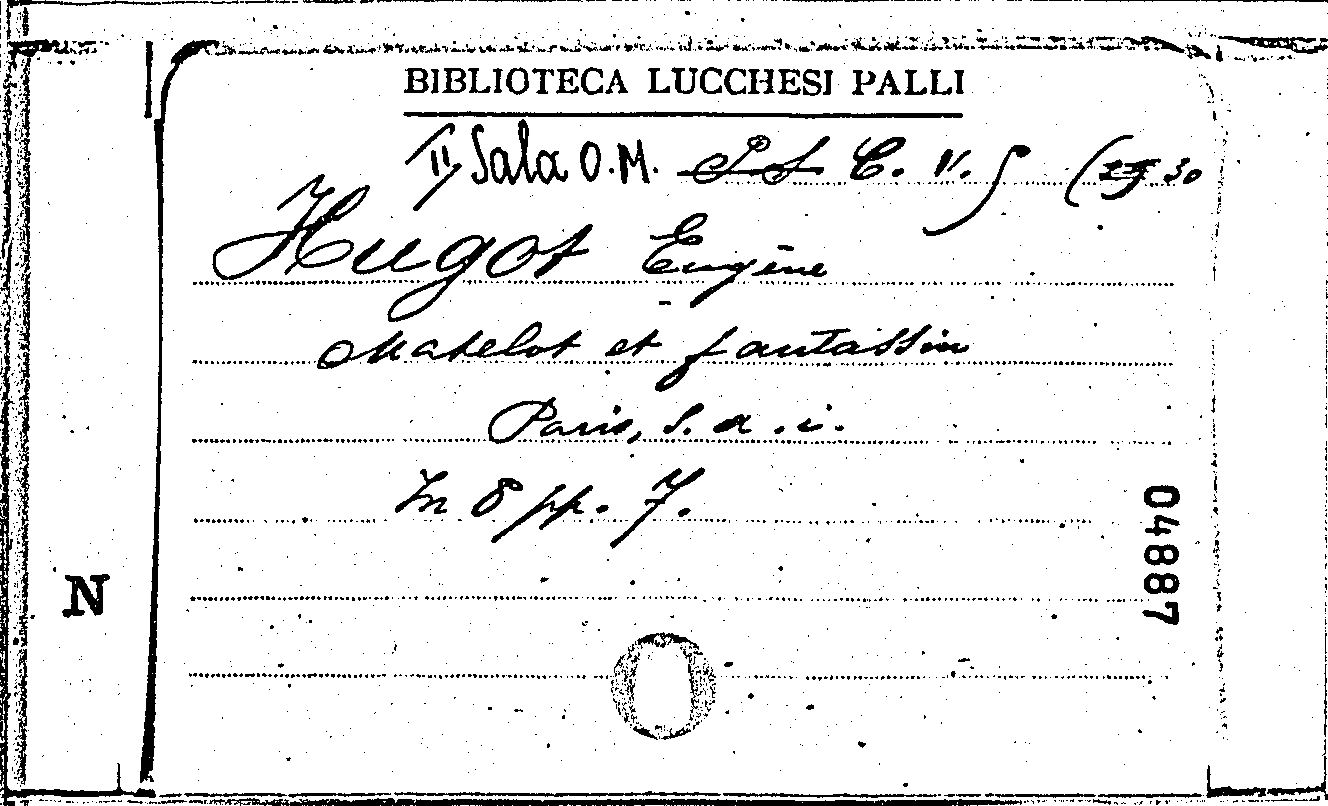 BIBLIOTECA LUCCHESI PALLI
II Sala O.M. C. V. 5 (30
Hugot Eugène
Matelot et fantassin
Paris, s. a. i.
In 8 pp. 7.
04887
N